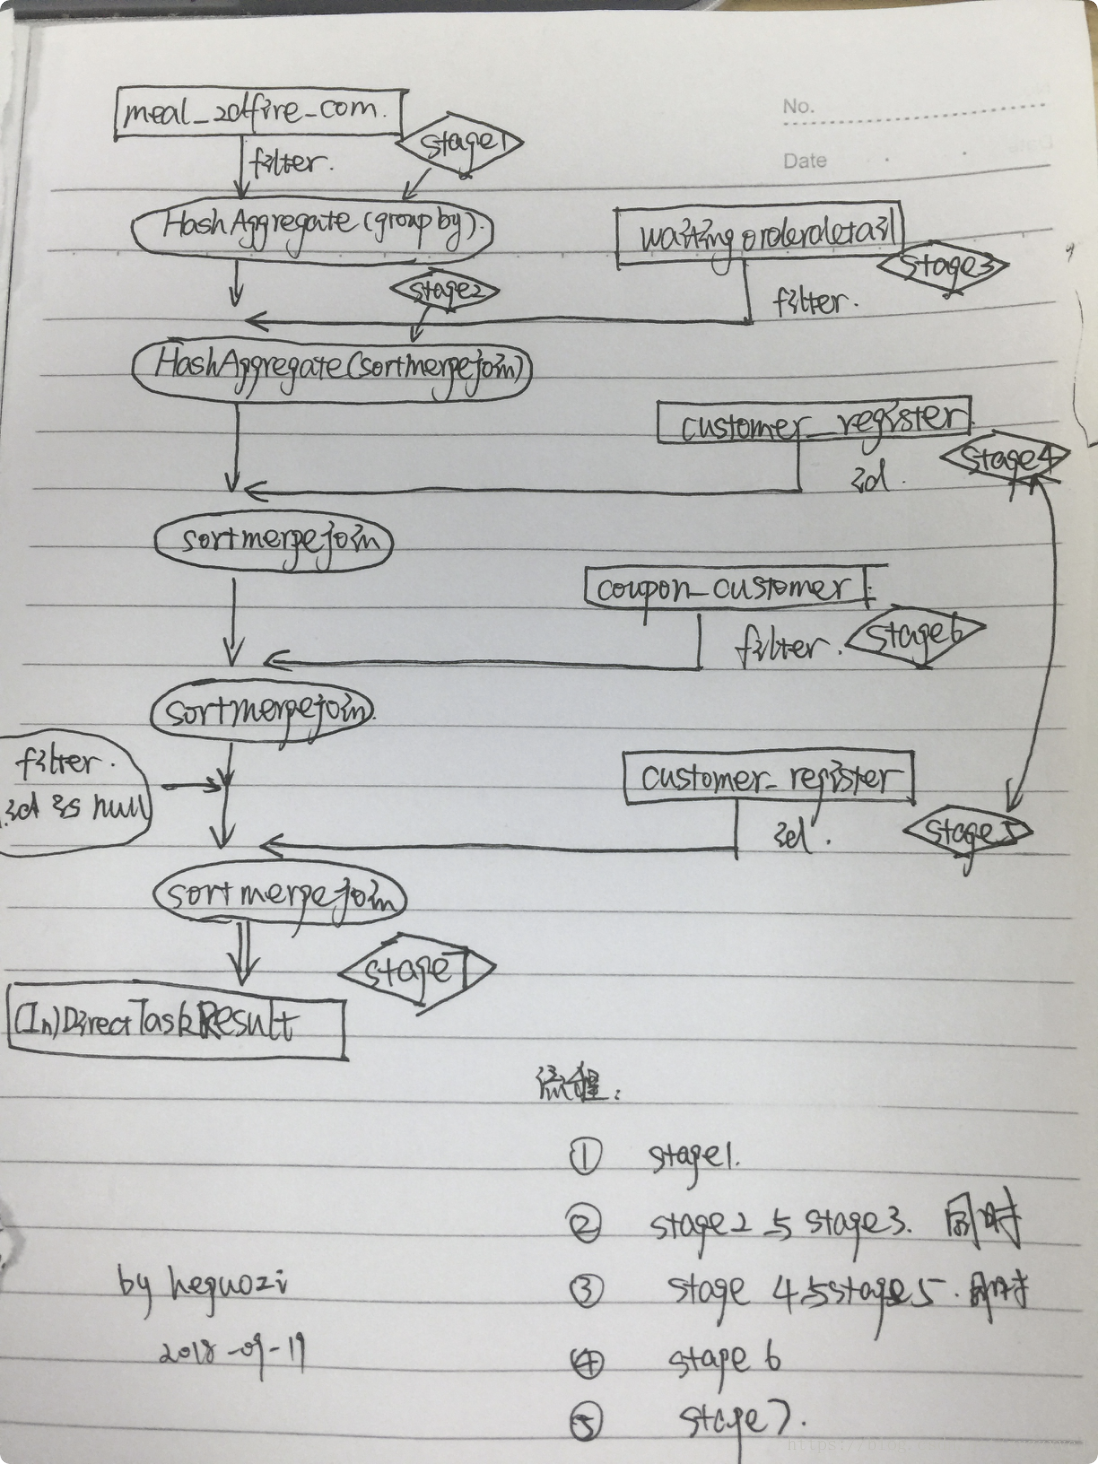 No.
Date
meal_2dfire_com.
stage1
filter.
HashAggregate(groupby).
waitingorderdetail
stage3
stage2
filter.
HashAggregate(sortmergejoin)
customer_register
stage4
id.
sortmergejoin
coupon_customer
stage6
filter.
sortmergejoin.
filter.
id is null
customer_register
id.
stage5
sortmergejoin
stage7
(In)DirectTaskResult
流程:
① stage1.
② stage2与stage3. 同时
③ stage 4与stage5. 同时
by heguozi
2018-09-19
④ stage 6
⑤ stage7.